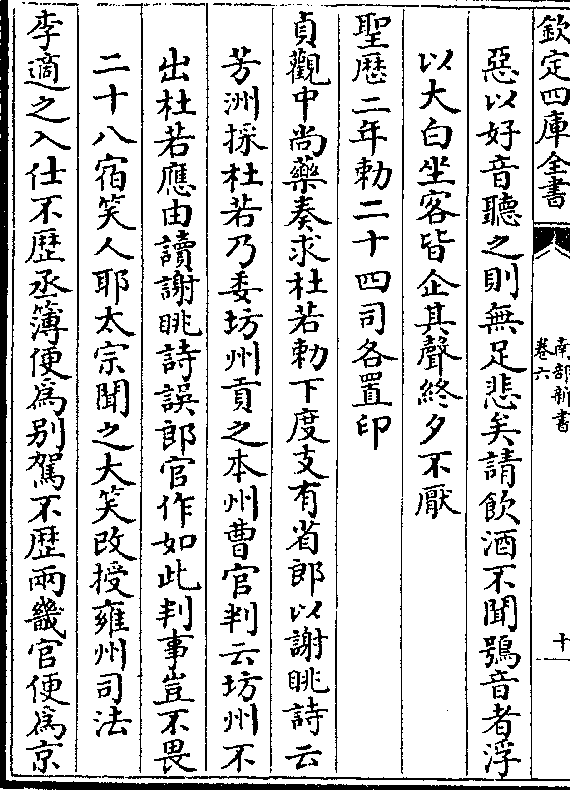 欽定四庫全書
南部新書
卷六
十
惡以好音聽之則無足悲矣請飲酒不聞鴞音者浮
以大白坐客皆企其聲終夕不厭
聖歷二年勅二十四司各置印
貞觀中尚藥奏求杜若勅下度支有省郎以謝眺詩云
芳洲採杜若乃委坊州貢之本州曹官判云坊州不
出杜若應由讀謝眺詩誤郎官作如此判事豈不畏
二十八宿笑人耶太宗聞之大笑改授雍州司法
李適之入仕不歴丞簿便為别駕不歴兩畿官便為京